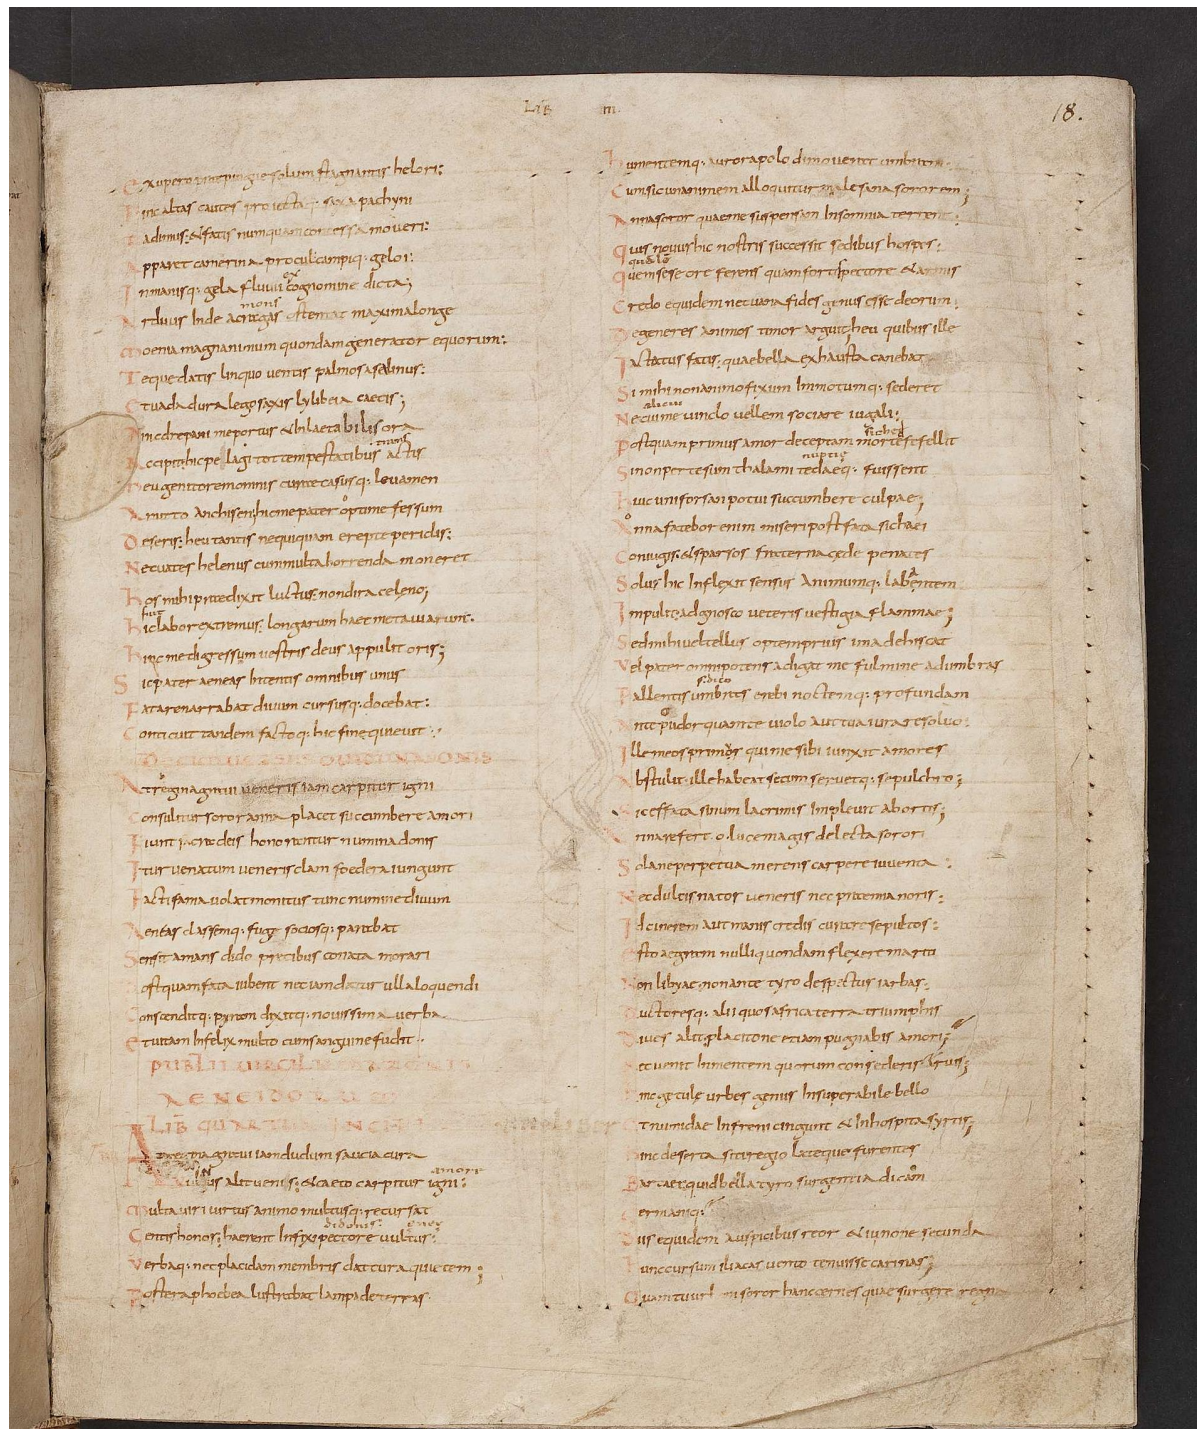 LIB III
18.
Exupero praepingue solum stagnantis helori:
Hinc altas cautes proiectaq; saxa pachyni
Radimus: & fatis numquam concessa moveri:
Apparet camerina procul: campiq; geloi:
Inmanisq; gela fluvii cognomine dicta;
mons
Arduus inde acragas ostentat maxima longe
Moenia magnanimum quondam generator equorum:
Teque datis linquo ventis palmosa selinus:
Et vada dura lego saxis lylibeia caecis;
Hinc drepani me portus & inlaetabilis ora
Accipit: hic pelagi tot tempestatibus actis
Heu genitorem omnis curae casusq; levamen
Amitto Anchisen: hic me pater optime fessum
Deseris: heu tantis nequiquam erepte periclis:
Nec vates helenus cum multa horrenda moneret
Hos mihi praedixit luctus: non dira celeno;
Hic labor extremus: longarum haec meta viarum:
Hinc me digressum vestris deus appulit oris;
Sic pater aeneas intentis omnibus unus
Fata renarrabat divum cursusq; docebat:
Conticuit tandem factoq; hic fine quievit:
At regina gravi veneris iam carpitur igni
Consulitur soror anna placet succumbere amori
Fiunt sacra deis honorantur numina donis
Itur venatum veneris clam foedera iungunt
Facti fama volat monitus tunc numine divum
Aeneas classemq; fuge sociosq; parabat
Sensit amans dido precibus conata morari
Postquam fata iubent nec iam datur ulla loquendi
Conscenditq; pyram dixitq; novissima verba
Et vitam infelix multo cum sanguine fudit:
PUBLII VIRGILII MARONIS
AENEIDORUM
LIB QUARTUS INCIPIT
At regina gravi iamdudum saucia cura
amore
Vulnus alit venis: & caeco carpitur igni:
Multa viri virtus animo multusq; recursat
didonis: eneę
Gentis honos: haerent infixi pectore vultus:
Verbaq; nec placidam membris dat cura quietem;
Postera phoebea lustrabat lampade terras
Humentemq; aurora polo dimoverat umbram
Cum sic unanimem alloquitur male sana sororem;
Anna soror quae me suspensam insomnia terrent:
Quis novus hic nostris successit sedibus hospes:
Quem sese ore ferens quam forti pectore & armis
Credo equidem nec vana fides genus esse deorum:
Degeneres animos timor arguit; heu quibus ille
Iactatus fatis: quae bella exhausta canebat
Si mihi non animo fixum inmotumq; sederet
Necui me vinclo vellem sociare iugali:
Postquam primus amor deceptam morte fefellit
nuptię
Si non pertesum thalami tedaeq; fuissent
Huic uni forsan potui succumbere culpae;
Anna fatebor enim miseri post fata sichaei
Coniugis: & sparsos fraterna cęde penates
Solus hic inflexit sensus Animumq; labentem
Impulit: adgnosco veteris vestigia flammae;
Sed mihi vel tellus optem prius ima dehiscat
Vel pater omnipotens adigat me fulmine ad umbras
Pallentis umbras erebi noctemq; profundam
Ante pudor quam te violo Aut tua iura resolvo:
Ille meos primos qui me sibi iunxit amores
Abstulit: ille habeat secum servetq; sepulchro;
Sic effata sinum lacrimis implevit abortis;
Anna refert: o luce magis delecta sorori
Solane perpetua merens carpere iuventa:
Nec dulcis natos veneris nec praemia noris:
Id cinerem aut manis credis curare sepultos:
Esto aegram nulli quondam flexere mariti
Non libyae non ante tyro despectus iarbas:
Ductoresq; alii quos africa terra triumphis
Dives alit: placitone etiam pugnabis amori;
Nec venit in mentem quorum consederis arvis;
Hinc getulę urbes genus insuperabile bello
Et numidae infreni cingunt & inhospita syrtis;
Hinc deserta siti regio lateque furentes
Barcaei: quid bella tyro surgentia dicam
Germaniq;
Dis equidem auspicibus reor & iunone secunda
Hunc cursum iliacas vento tenuisse carinas;
Quam tu urbem soror hanc cernes quae surgere regna